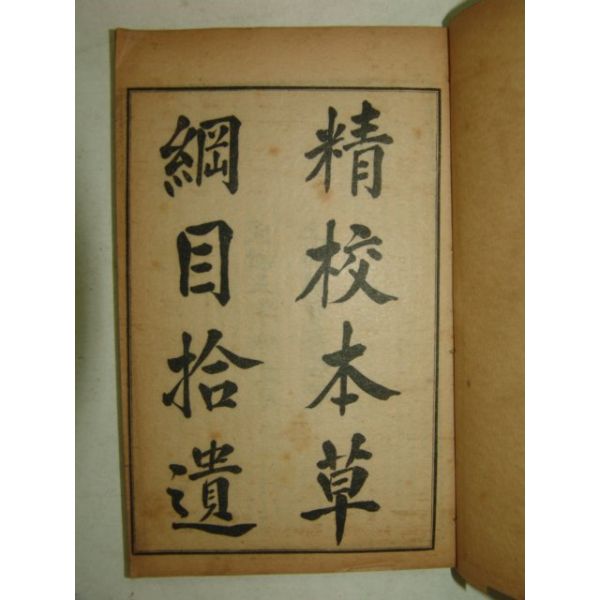 精校本草
綱目拾遺